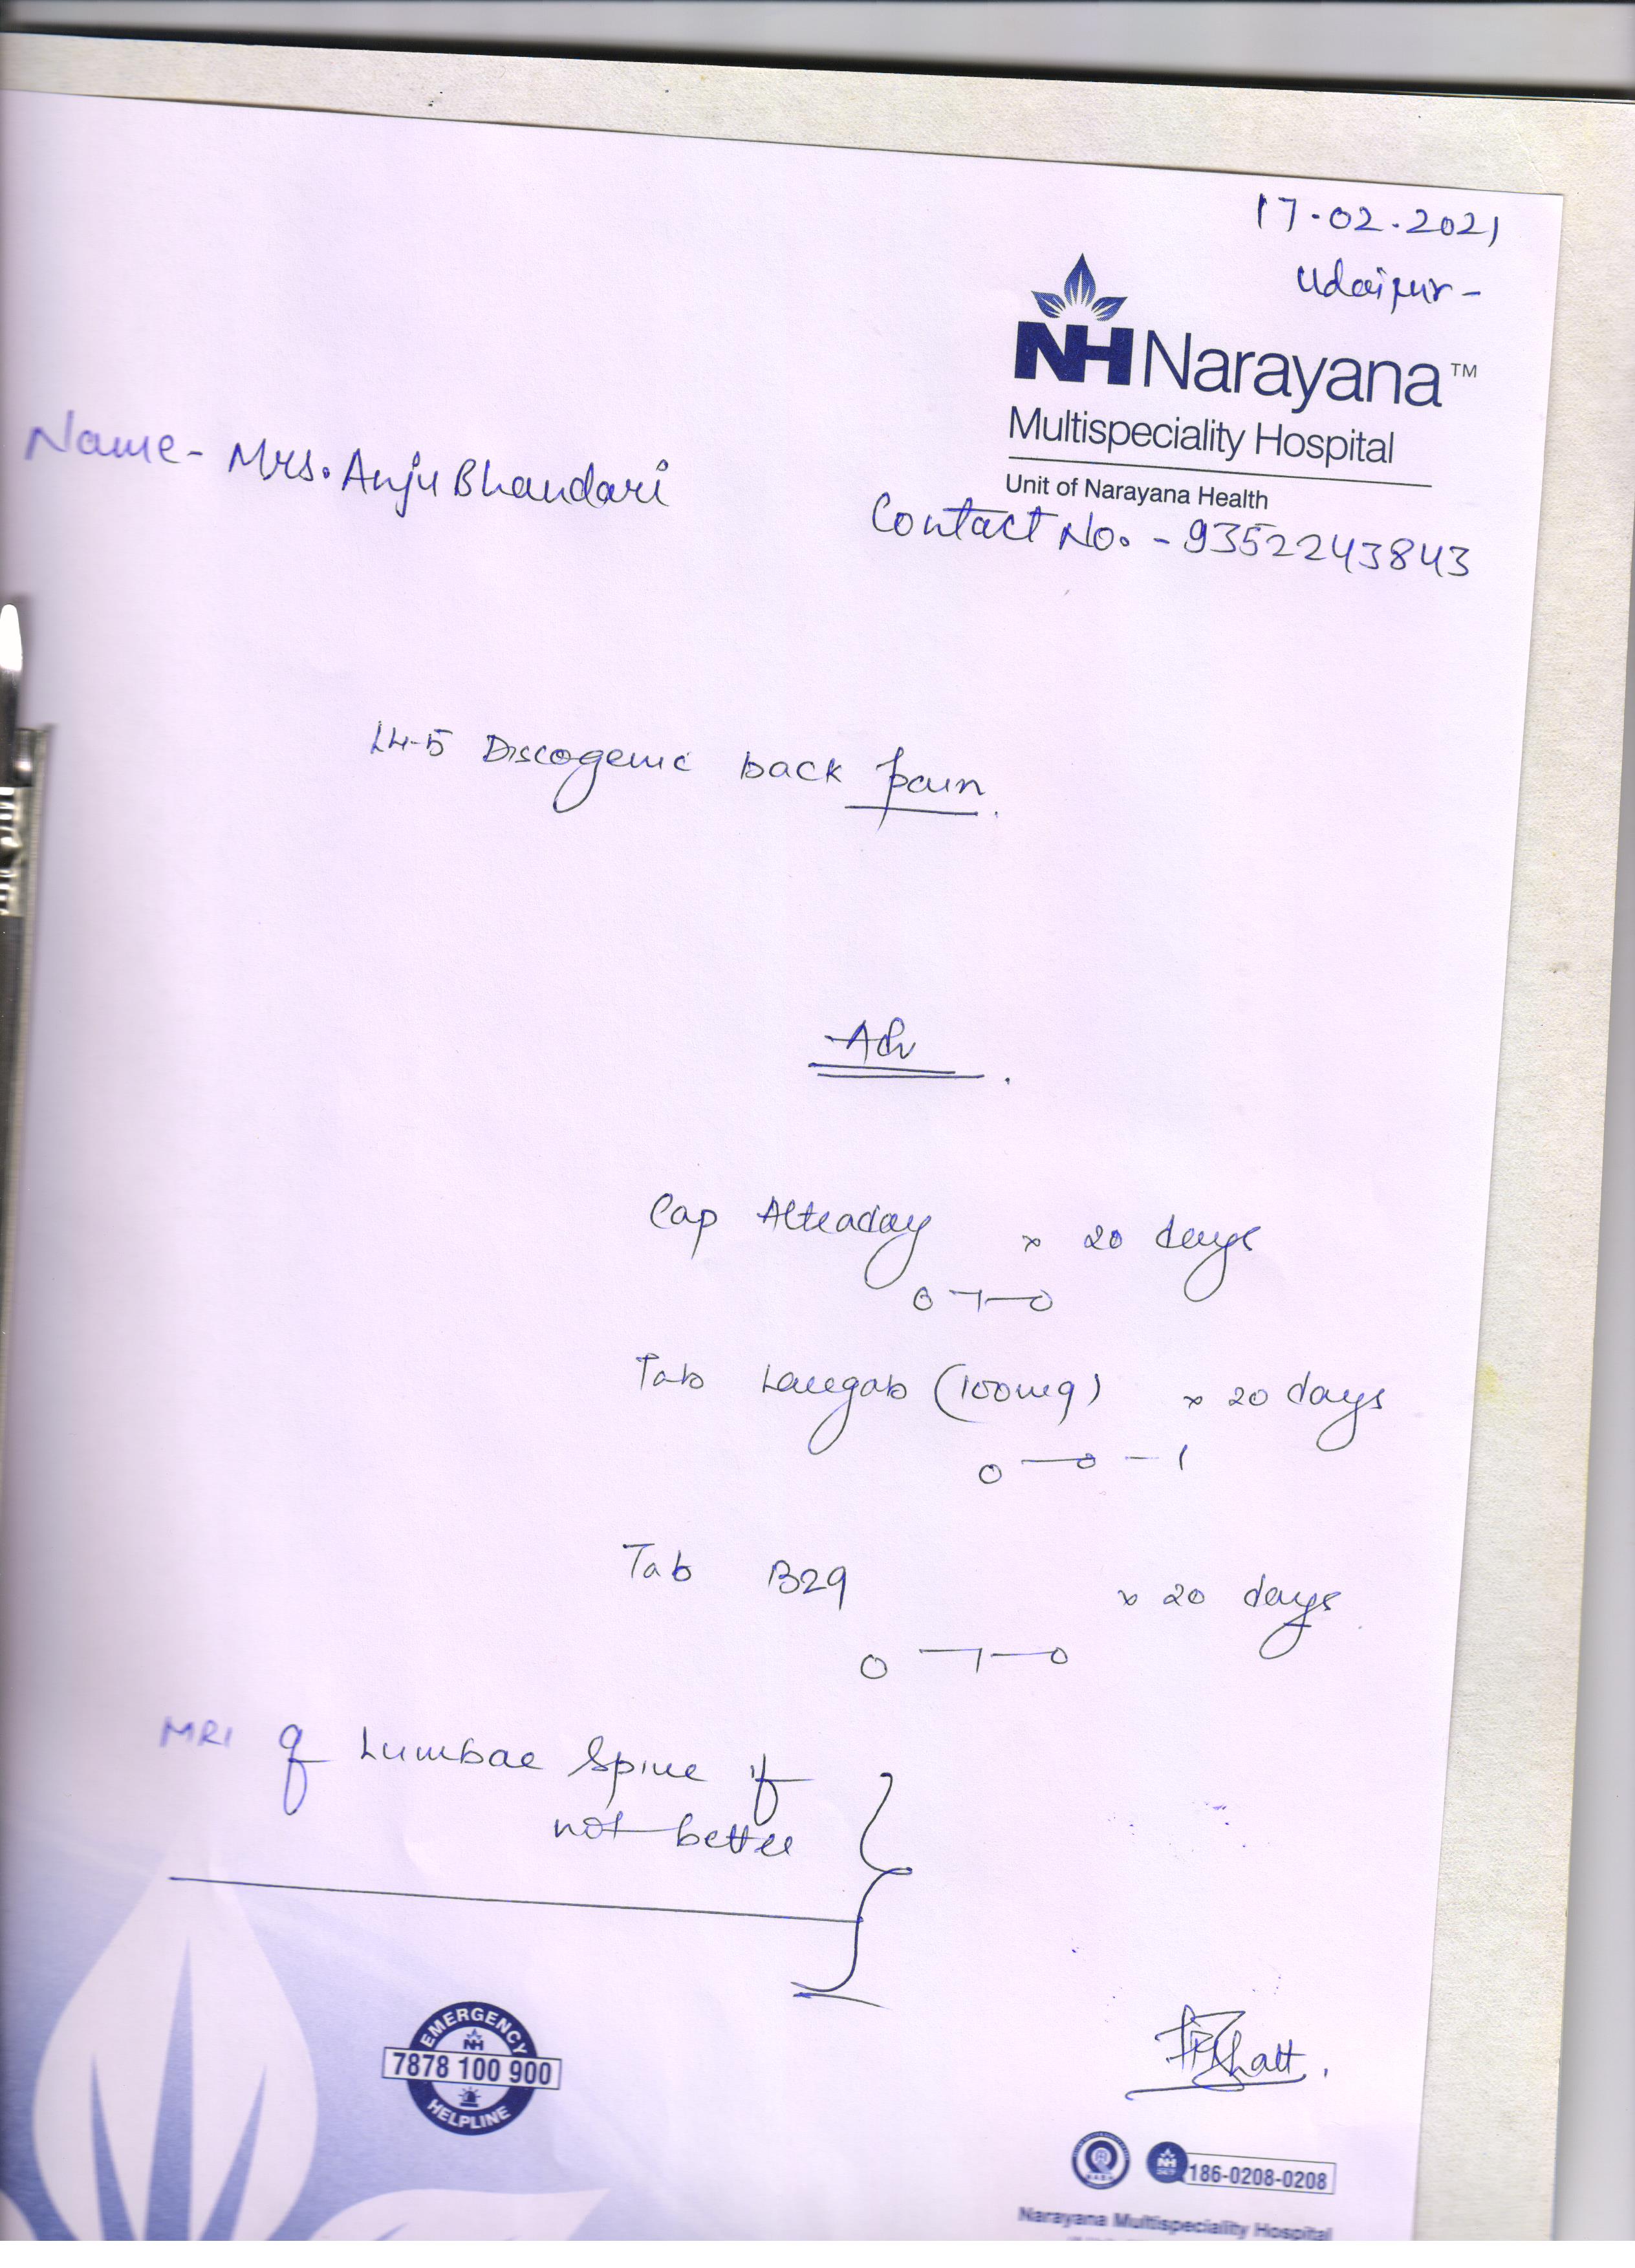 17.02.2021
Udaipur -
NH Narayana™
Multispeciality Hospital
Unit of Narayana Health
Name - Mrs. Anju Bhandari
Contact No. - 9352243843
L4-5 Discogenic back pain.
Adv
Cap Alteaday x 20 days
0-1-0
Tab Laregab (100mg) x 20 days
0-0-1
Tab B29 x 20 days
0-1-0
MRI of Lumbar Spine if
not better
EMERGENCY
NH
7878 100 900
HELPLINE
NH
186-0208-0208
Narayana Multispeciality Hospital